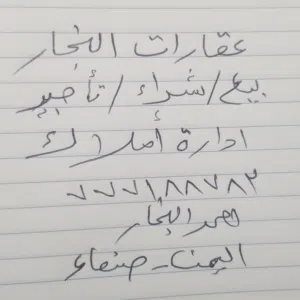 عقارات النجار
بيع/شراء/تأجير
ادارة أملاك
٧٧٧١٨٨٧٨٢
النجار
اليمن - صنعاء